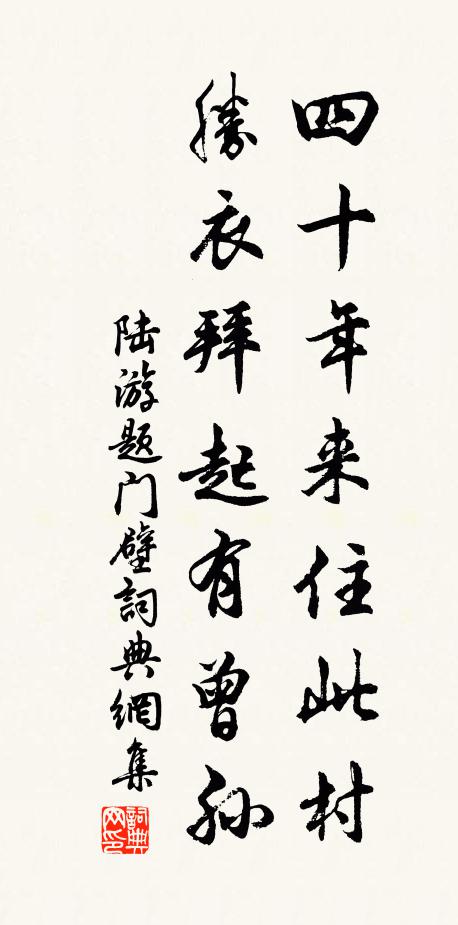 四十年来住此村
勝衣拜起有曾孙
陆游题门壁詞典網集
詞典网印